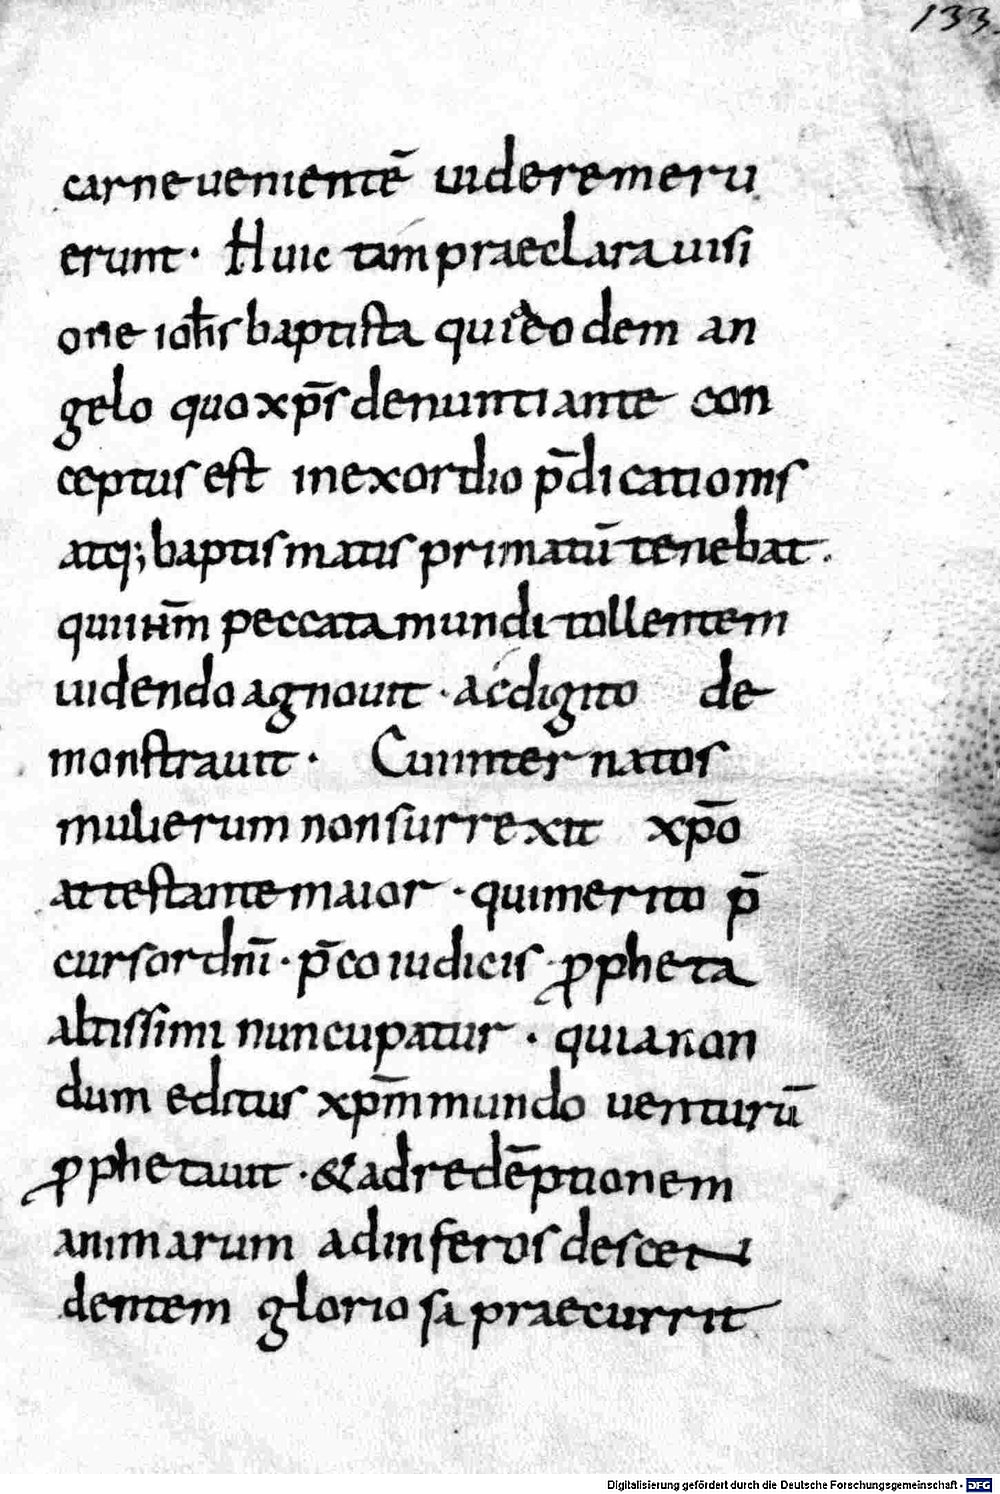 133.
carne uenientē uidere meru
erunt· Huic tam praeclara uisi
one ioħs baptista qui eodem an
gelo quo xp̄s denuntiante con
ceptus est in exordio p̄dicationis
atq; baptismatis primatū tenebat.
peccata mundi tollentem
uidendo agnouit · ac digito de
monstrauit · Cui inter natos
mulierum non surrexit xp̄o
attestante maior · qui merito p̄
cursor dn̄i · p̄co iudicis ꝓpheta
altissimi nuncupatur · quia non
dum editus xp̄m mundo uenturū
ꝓphetauit · & ad redēptionem
animarum ad inferos descen
dentem gloriosa praecurrit
Digitalisierung gefördert durch die Deutsche Forschungsgemeinschaft - DFG